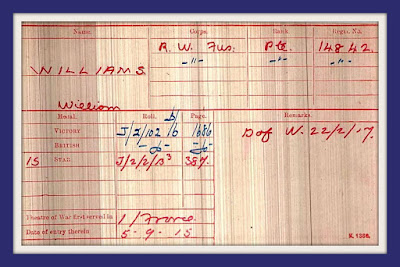 Name. Corps. Rank. Regtl. No.
R. W. Fus. Pte. 14842.
-"- -"- -"-
WILLIAMS.
William
Medal. Roll. Page. Remarks.
VICTORY J/2/102 B 1686 D of W. 22/2/17.
BRITISH -do- -do-
15 STAR J/2/2/B3 387.
Theatre of War first served in 1) France.
Date of entry therein 5-9-15
K. 1380.